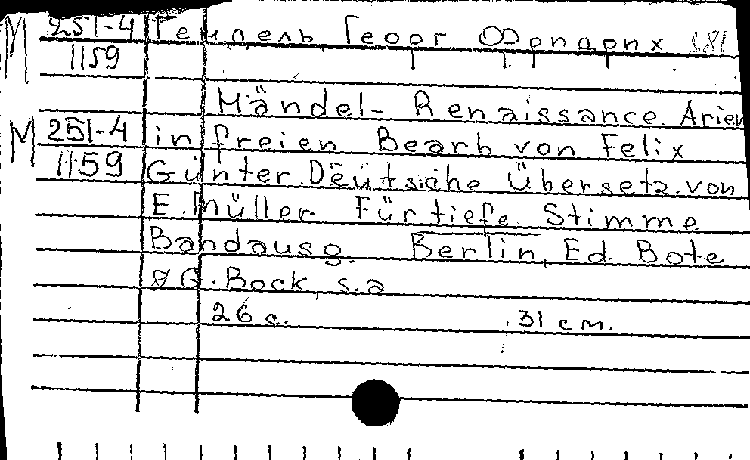 M 251-4 Гендель Георг Фридрих 681
1159
Händel-Renaissance. Arien
M 251-4 in freien Bearb von Felix
1159 Günter. Deutsche Übersetz. von
E. Müller Für tiefe Stimme
Bandausg. Berlin, Ed. Bote
& G. Bock, s.a
26 c. 31 cm.